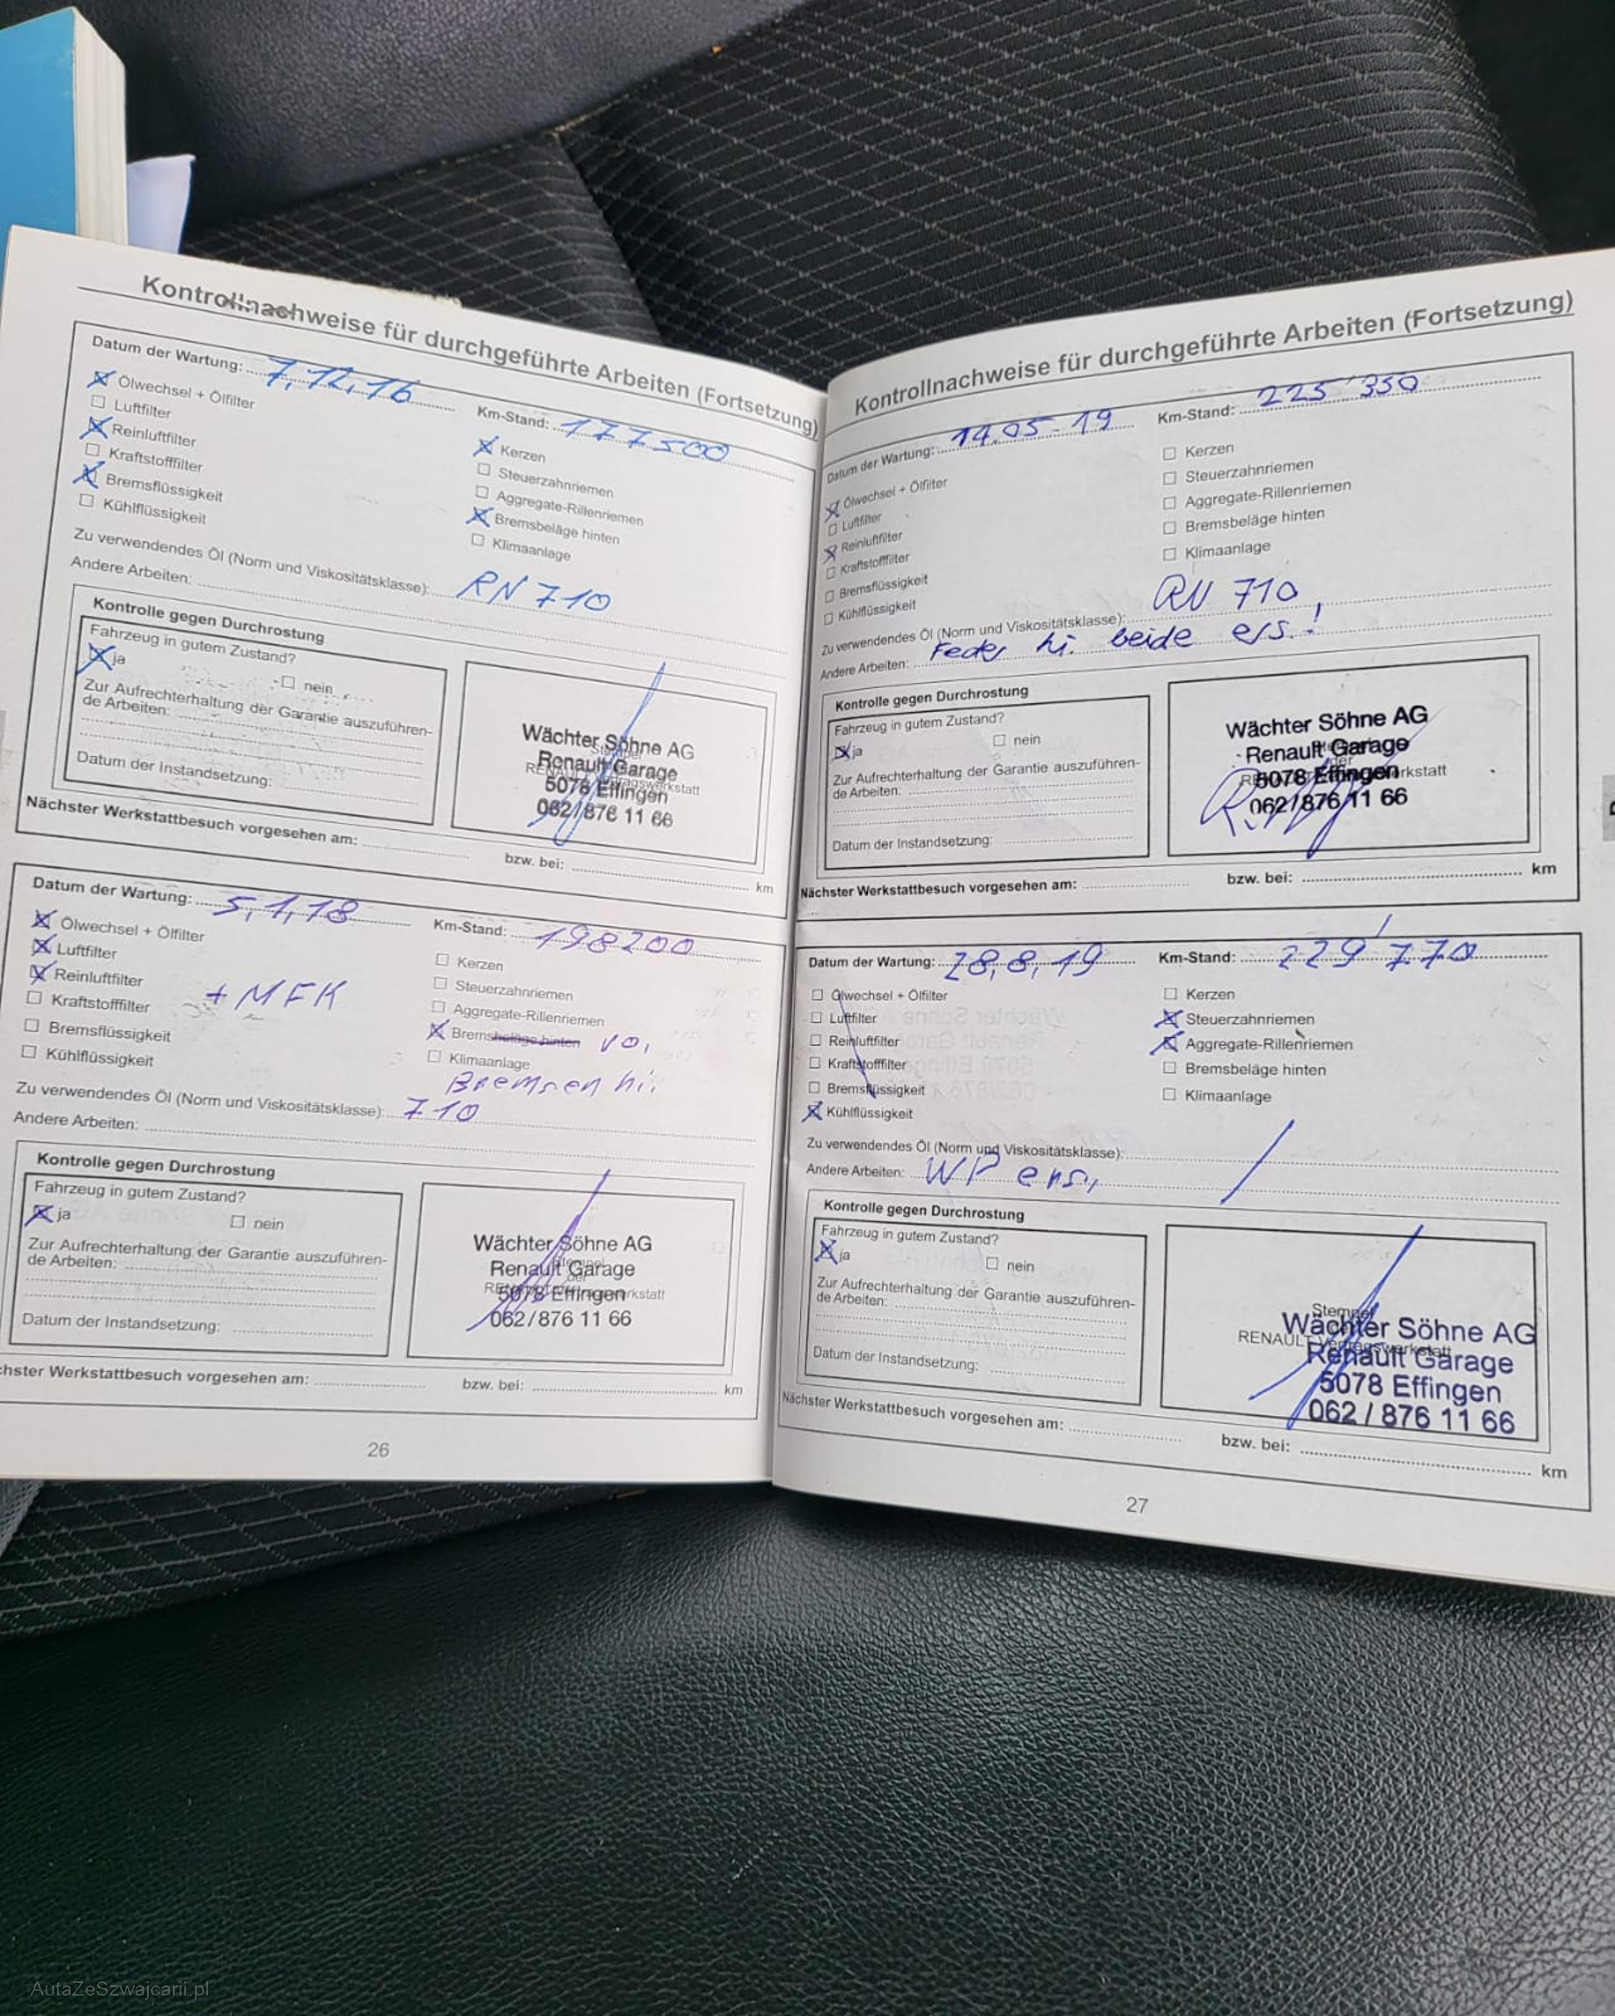 Kontrollnachweise für durchgeführte Arbeiten (Fortsetzung)
Datum der Wartung: 7,12,16 Km-Stand: 177500
Ölwechsel + Ölfilter
Luftfilter
Reinluftfilter
Kraftstofffilter
Bremsflüssigkeit
Kühlflüssigkeit
Kerzen
Steuerzahnriemen
Aggregate-Rillenriemen
Bremsbeläge hinten
Klimaanlage
Zu verwendendes Öl (Norm und Viskositätsklasse): RN 710
Andere Arbeiten:
Kontrolle gegen Durchrostung
Fahrzeug in gutem Zustand?
ja nein
Zur Aufrechterhaltung der Garantie auszuführen-
de Arbeiten:
Datum der Instandsetzung:
Wächter Söhne AG
Renault Garage
5078 Effingen
062/876 11 66
Nächster Werkstattbesuch vorgesehen am: bzw. bei: km
Datum der Wartung: 5,1,18 Km-Stand: 198200
Ölwechsel + Ölfilter
Luftfilter
Reinluftfilter
Kraftstofffilter + MFK
Bremsflüssigkeit
Kühlflüssigkeit
Kerzen
Steuerzahnriemen
Aggregate-Rillenriemen
Bremsbeläge hinten vo,
Klimaanlage
Bremsen hi.
Zu verwendendes Öl (Norm und Viskositätsklasse): 710
Andere Arbeiten:
Kontrolle gegen Durchrostung
Fahrzeug in gutem Zustand?
ja nein
Zur Aufrechterhaltung der Garantie auszuführen-
de Arbeiten:
Datum der Instandsetzung:
Wächter Söhne AG
Renault Garage
5078 Effingen
062/876 11 66
chster Werkstattbesuch vorgesehen am: bzw. bei: km
26
Kontrollnachweise für durchgeführte Arbeiten (Fortsetzung)
Datum der Wartung: 14.05-19 Km-Stand: 225'350
Ölwechsel + Ölfilter
Luftfilter
Reinluftfilter
Kraftstofffilter
Bremsflüssigkeit
Kühlflüssigkeit
Kerzen
Steuerzahnriemen
Aggregate-Rillenriemen
Bremsbeläge hinten
Klimaanlage
Zu verwendendes Öl (Norm und Viskositätsklasse): RN 710
Andere Arbeiten: Feder hi. beide ers.!
Kontrolle gegen Durchrostung
Fahrzeug in gutem Zustand?
ja nein
Zur Aufrechterhaltung der Garantie auszuführen-
de Arbeiten:
Datum der Instandsetzung:
Wächter Söhne AG
Renault Garage
5078 Effingen
062/876 11 66
Nächster Werkstattbesuch vorgesehen am: bzw. bei: km
Datum der Wartung: 28,8,19 Km-Stand: 229'770
Ölwechsel + Ölfilter
Luftfilter
Reinluftfilter
Kraftstofffilter
Bremsflüssigkeit
Kühlflüssigkeit
Kerzen
Steuerzahnriemen
Aggregate-Rillenriemen
Bremsbeläge hinten
Klimaanlage
Zu verwendendes Öl (Norm und Viskositätsklasse):
Andere Arbeiten: WP ers,
Kontrolle gegen Durchrostung
Fahrzeug in gutem Zustand?
ja nein
Zur Aufrechterhaltung der Garantie auszuführen-
de Arbeiten:
Datum der Instandsetzung:
Stempel
RENAULT Vertragswerkstatt
Wächter Söhne AG
Renault Garage
5078 Effingen
062 / 876 11 66
Nächster Werkstattbesuch vorgesehen am: bzw. bei: km
27
AutaZeSzwajcarii.pl